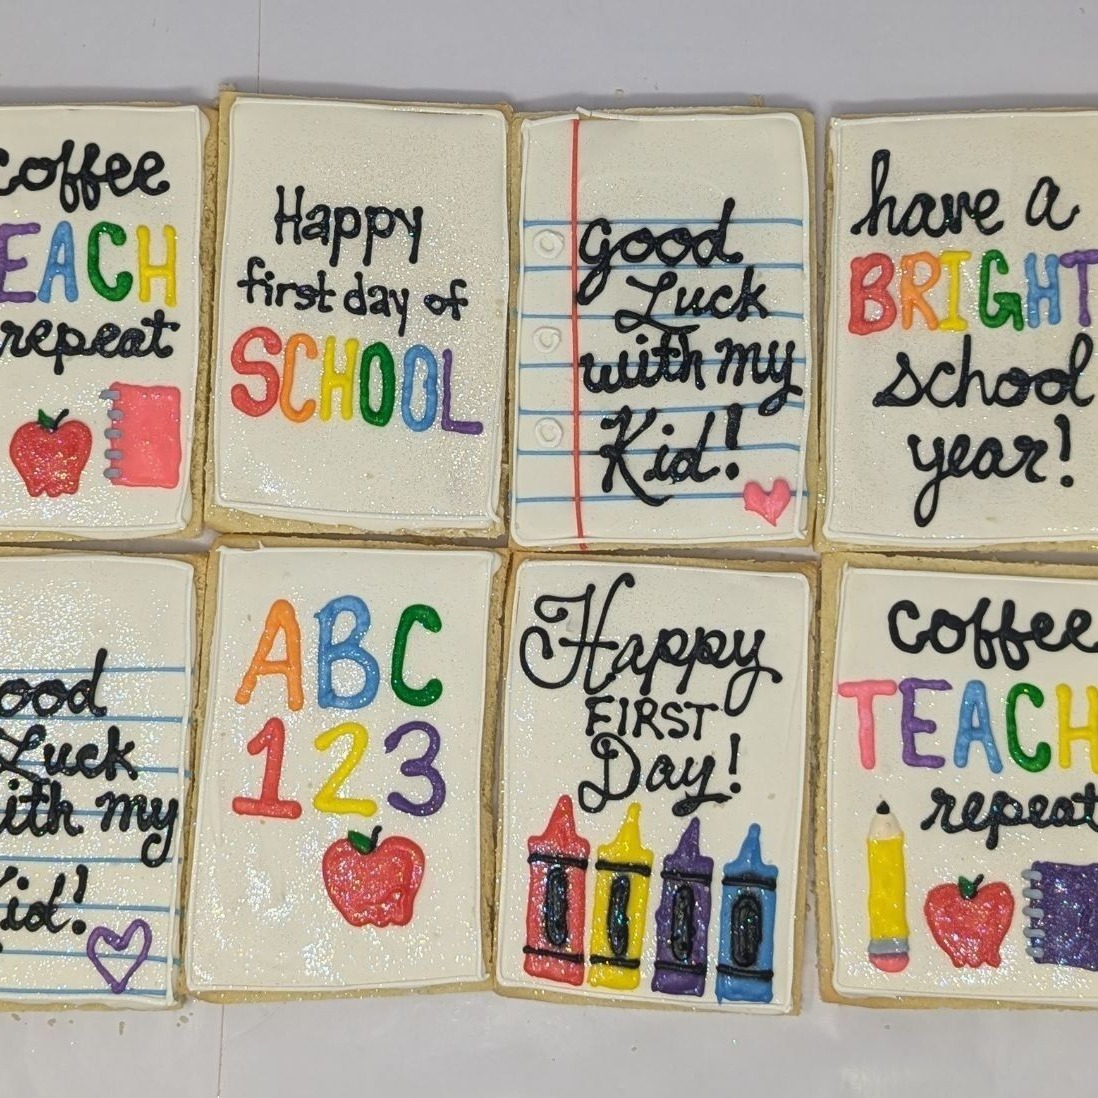 coffee
EACH
repeat
Happy
first day of
SCHOOL
good
Luck
with my
Kid!
have a
BRIGHT
school
year!
ood
Luck
ith my
id!
ABC
123
Happy
FIRST
Day!
coffee
TEACH
repeat